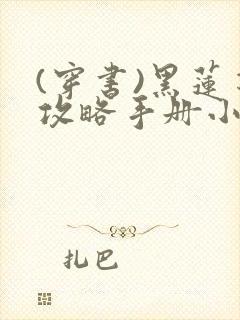 (穿书)黑莲
攻略手册小
扎巴